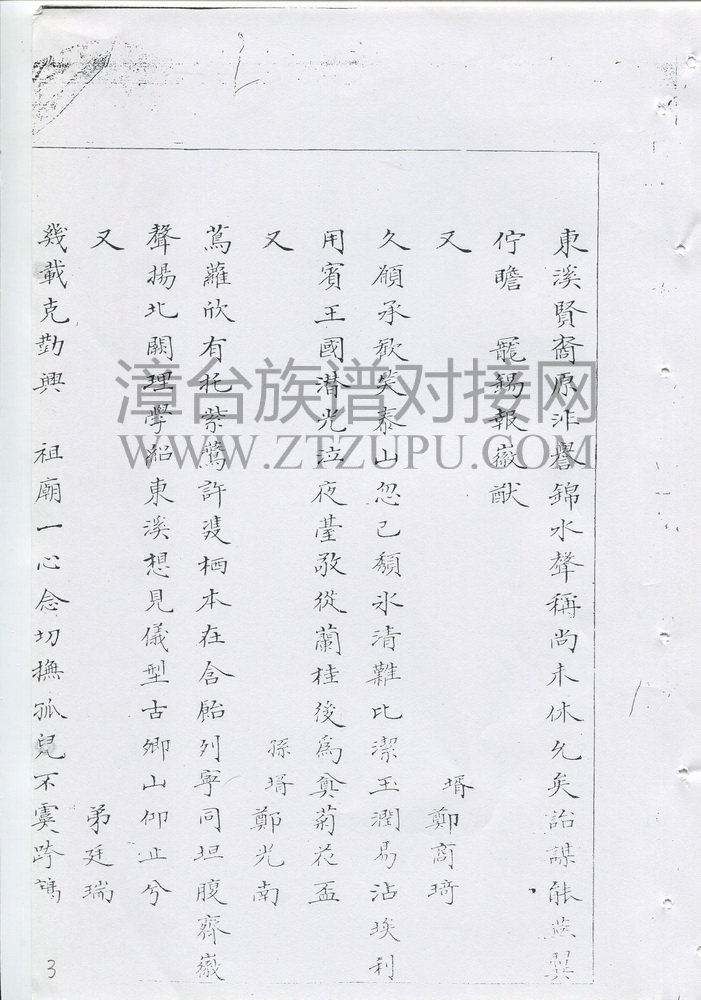 東溪賢裔原非譽錦水聲稱尚未休允矣詒謀能燕翼
佇瞻 寵錫報徽猷
又 壻鄭商琦
久願承歡笑泰山忽已頹氷清難比潔玉潤易沾埃利
用賓王國潜光泣夜臺敬從蘭桂後爲奠菊花盃
又 孫壻鄭光南
蔦蘿欣有托紫鶯許雙栖本在含飴列寧同坦腹齊徽
聲揚北闕理學紹東溪想見儀型古鄉山仰止兮
又 弟廷瑞
幾載克勤興 祖廟一心念切撫孤兒不虞跨鶴
3
漳台族谱对接网
WWW.ZTZUPU.COM